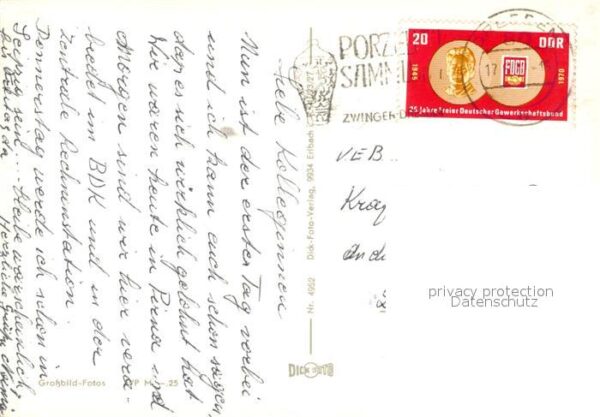 Liebe Kolleginnen
Nun ist der erste Tag vorbei
und ich kann euch schon sagen,
daß es sich wirklich gelohnt hat
Wir waren heute in Pirna und
morgen sind wir hier vera-
biedet im BDK und in der
Zentrale Rechenstation.
Donnerstag werde ich schon in
Leipzig sein. Habe warscheinlich
Herzliche Grüße
PORZEL
SAMML
ZWINGER-D
17
20
DDR
1945
FDGB
1970
25 Jahre Freier Deutscher Gewerkschaftsbund
VEB
Nr. 4952 Dick-Foto-Verlag, 9934 Erlbach
DICK FOTO
Großbild-Fotos
25
privacy protection
Datenschutz